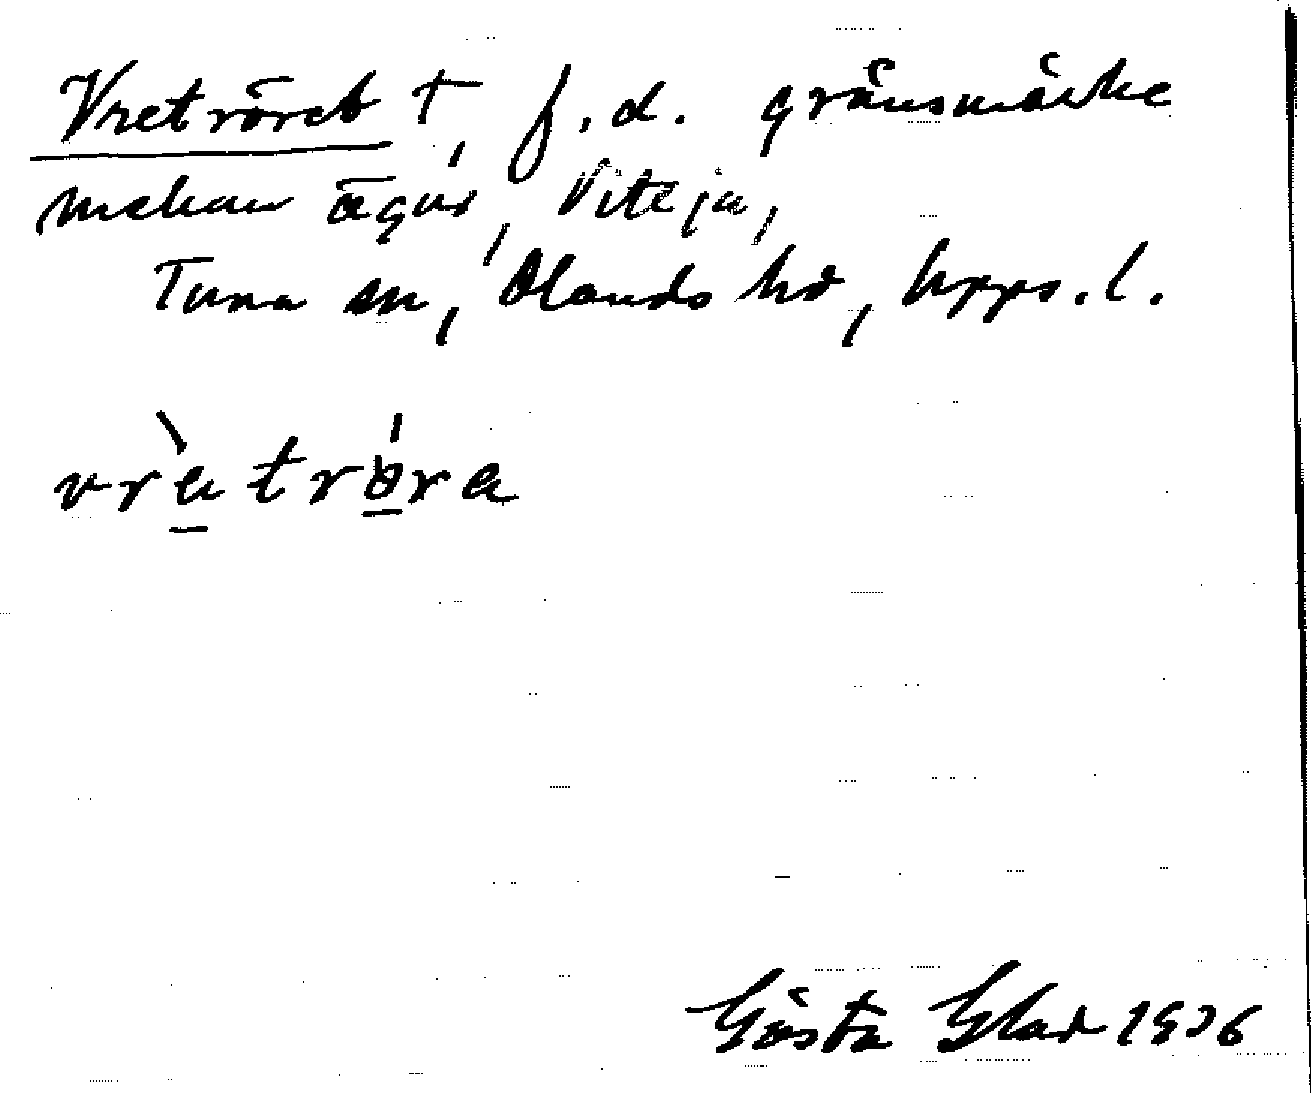 Vretröret †, f.d. gränsmärke
mellan ägor, Viteja,
Tuna sn, Olands hd, Upps. l.
vrètröra
Gösta Glad 1936